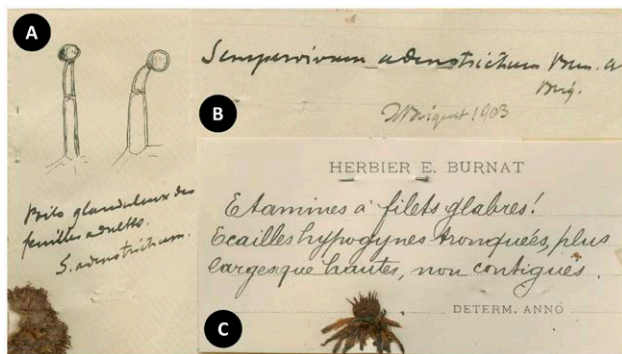 A
Poils glanduleux des
feuilles adultes.
S. adenotrichum.
Sempervivum adenotrichum Burn. et
Briq.
B
J Briquet 1903
HERBIER E. BURNAT
Etamines à filets glabres!
Ecailles hypogynes tronquées, plus
larges que hautes, non contiguës.
DETERM. ANNO
C